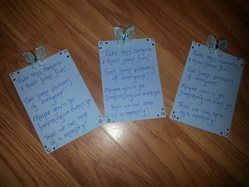 Take this camera
& have some fun!
Get some pictures
of everyone!
Maybe you'll get
Something we didn't
Then we can keep
a memory!
Take this camera
& have some fun!
Get some pictures
of everyone!
Maybe you'll get
Something we didn't
Then we can keep
a memory!
Take this camera
& have some fun!
Get some pictures
of everyone!
Maybe you'll get
Something we didn't
Then we can keep
a memory!